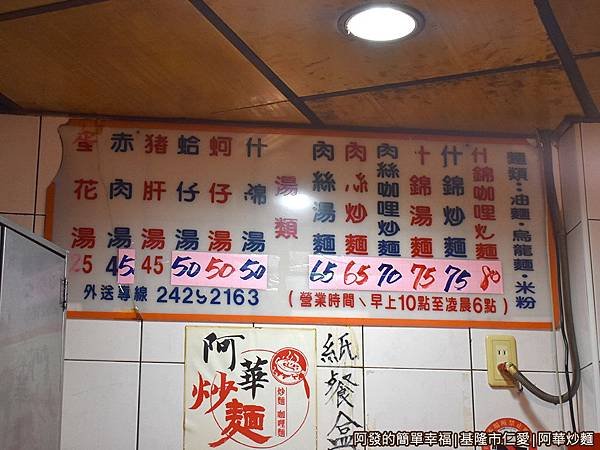 麵類:油麵·烏龍麵·米粉
什錦咖哩炒麵 80
什錦炒麵 75
什錦湯麵 75
肉絲咖哩炒麵 70
肉絲炒麵 65
肉絲湯麵 65
湯類
什錦湯 50
蚵仔湯 50
蛤仔湯 50
豬肝湯 45
赤肉湯 45
蛋花湯 25
外送專線 24292163
(營業時間、早上10點至凌晨6點)
阿華
炒麵
炒麵·咖哩麵
紙餐盒
阿發的簡單幸福|基隆市仁愛|阿華炒麵